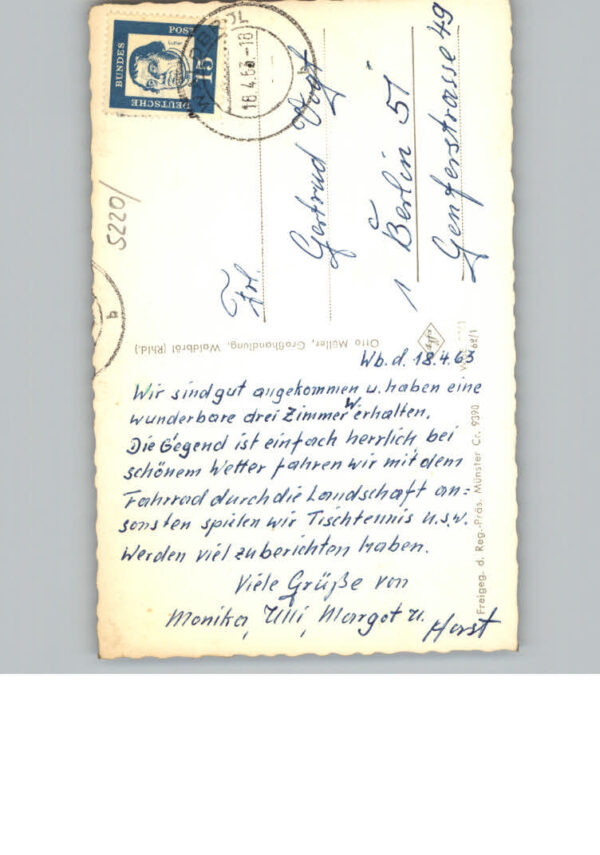 DEUTSCHE
BUNDES
POST
15
18.4.63-18
5220/
b
Frl.
Gertrud Vogt
1 Berlin 51
Genferstrasse 49
Otto Müller, Großhandlung, Waldbröl (Rhld.)
Freigeg. d. Reg.-Präs. Münster Cr. 9390
Wb. d. 18.4.63
Wir sind gut angekommen u. haben eine
wunderbare drei Zimmer W. erhalten.
Die Gegend ist einfach herrlich, bei
schönem Wetter fahren wir mit dem
Fahrrad durch die Landschaft an=
sonsten spielen wir Tischtennis u.s.w.
Werden viel zu berichten haben.
Viele Grüße von
Monika, Ulli, Margot u. Horst